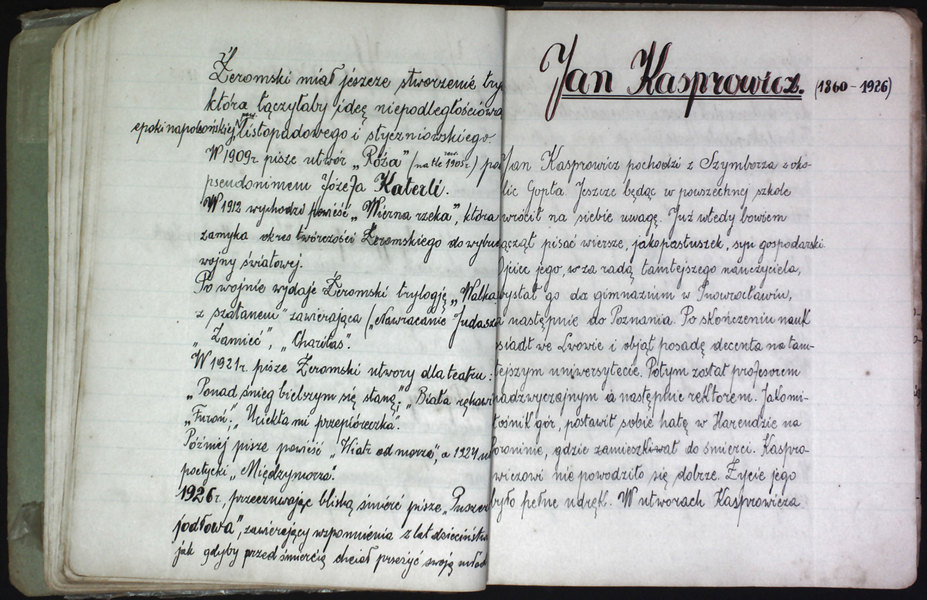 Żeromski miał jeszcze stworzenie try
która łączyłaby ideę niepodległościową
epoki napoleońskiej, pow. listopadowego i styczniowskiego.
W 1909r. pisze utwór „Róża" (na tle rew. 1905r.) pod
pseudonimem Józefa Katerli.
W 1912 wychodzi powieść „Wierna rzeka", która
zamyka okres twórczości Żeromskiego do wybuc
wojny światowej.
Po wojnie wydaje Żeromski trylogję „Walka
z szatanem" zawierająca („Nawracanie Judasza
„Zamieć", „Charitas".
W 1921r. pisze Żeromski utwory dla teatru:
„Ponad śnieg bielszym się stanę", „Biała rękawi
„Turoń", „Uciekła mi przepióreczka".
Później pisze powieść „Wiatr od morza", a 1924 w
poetycki „Międzymorze".
1926r., przeczuwając bliską śmierć pisze „Puszcz
jodłowa", zawierający wspomnienia z lat dzieciństwa
jak gdyby przed śmiercią chciał przeżyć swoją młodo
Jan Kasprowicz. (1860-1926)
Jan Kasprowicz pochodzi z Szymborza z oko-
lic Gopła. Jeszcze będąc w powszechnej szkole
wrócił na siebie uwagę. Już wtedy bowiem
zaczął pisać wiersze, jako pastuszek, syn gospodarski.
Ojciec jego, za radą tamtejszego nauczyciela,
wysłał go do gimnazium w Inowrocławiu,
a następnie do Poznania. Po skończeniu nauk
osiadł we Lwowie i objął posadę docenta na tam-
tejszym uniwersytecie. Potym został profesorem
nadzwyczajnym a następnie rektorem. Jako mi-
łośnik gór, postawił sobie chatę w Harendzie na
Poroninie, gdzie zamieszkiwał do śmierci. Kaspro-
wiczowi nie powodziło się dobrze. Życie jego
było pełne udręk. W utworach Kasprowicza